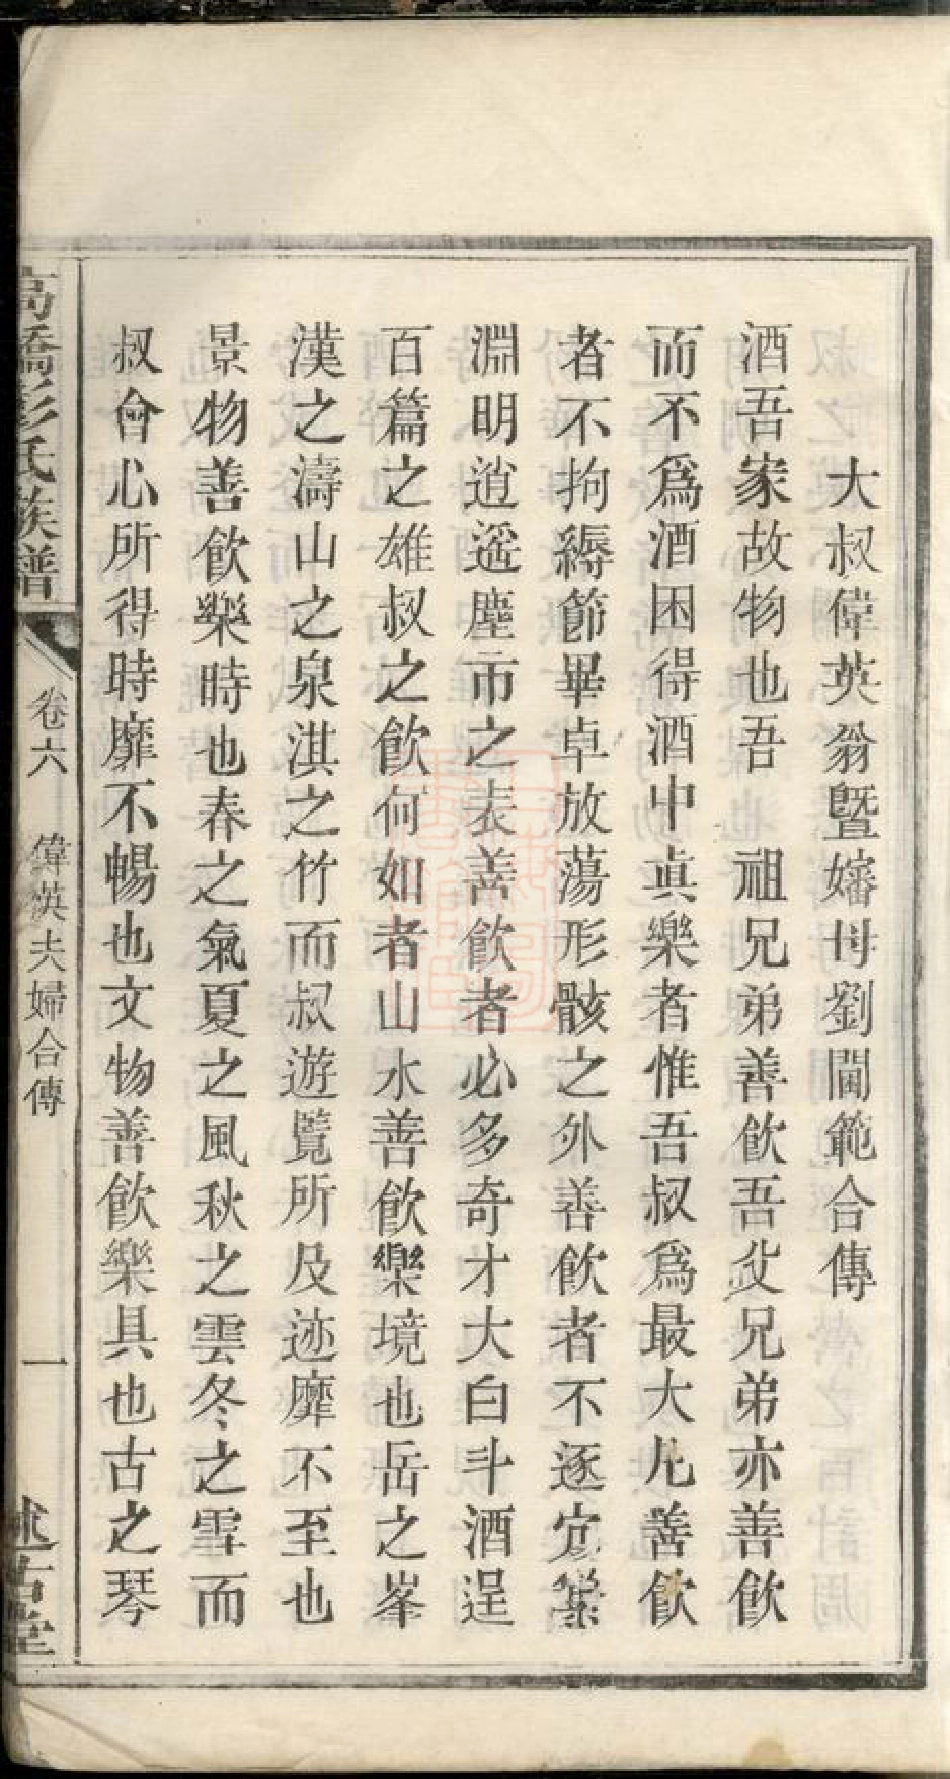 大叔偉英翁暨嬸母劉閫範合傳
酒吾家故物也吾　祖兄弟善飲吾父兄弟亦善飲
而不爲酒困得酒中眞樂者惟吾叔爲最大凡善飲
者不拘縟節畢卓放蕩形骸之外善飲者不逐穷藥
淵明逍遥塵市之表善飲者必多奇才大白斗酒逞
百篇之雄叔之飲何如者山水善飲樂境也岳之峯
漢之濤山之泉淇之竹而叔遊覽所及迹靡不至也
景物善飲樂時也春之氣夏之風秋之雲冬之雪而
叔會心所得時靡不暢也文物善飲樂具也古之琴
高橋彭氏族譜
卷六　偉英夫婦合傳
一
述古堂